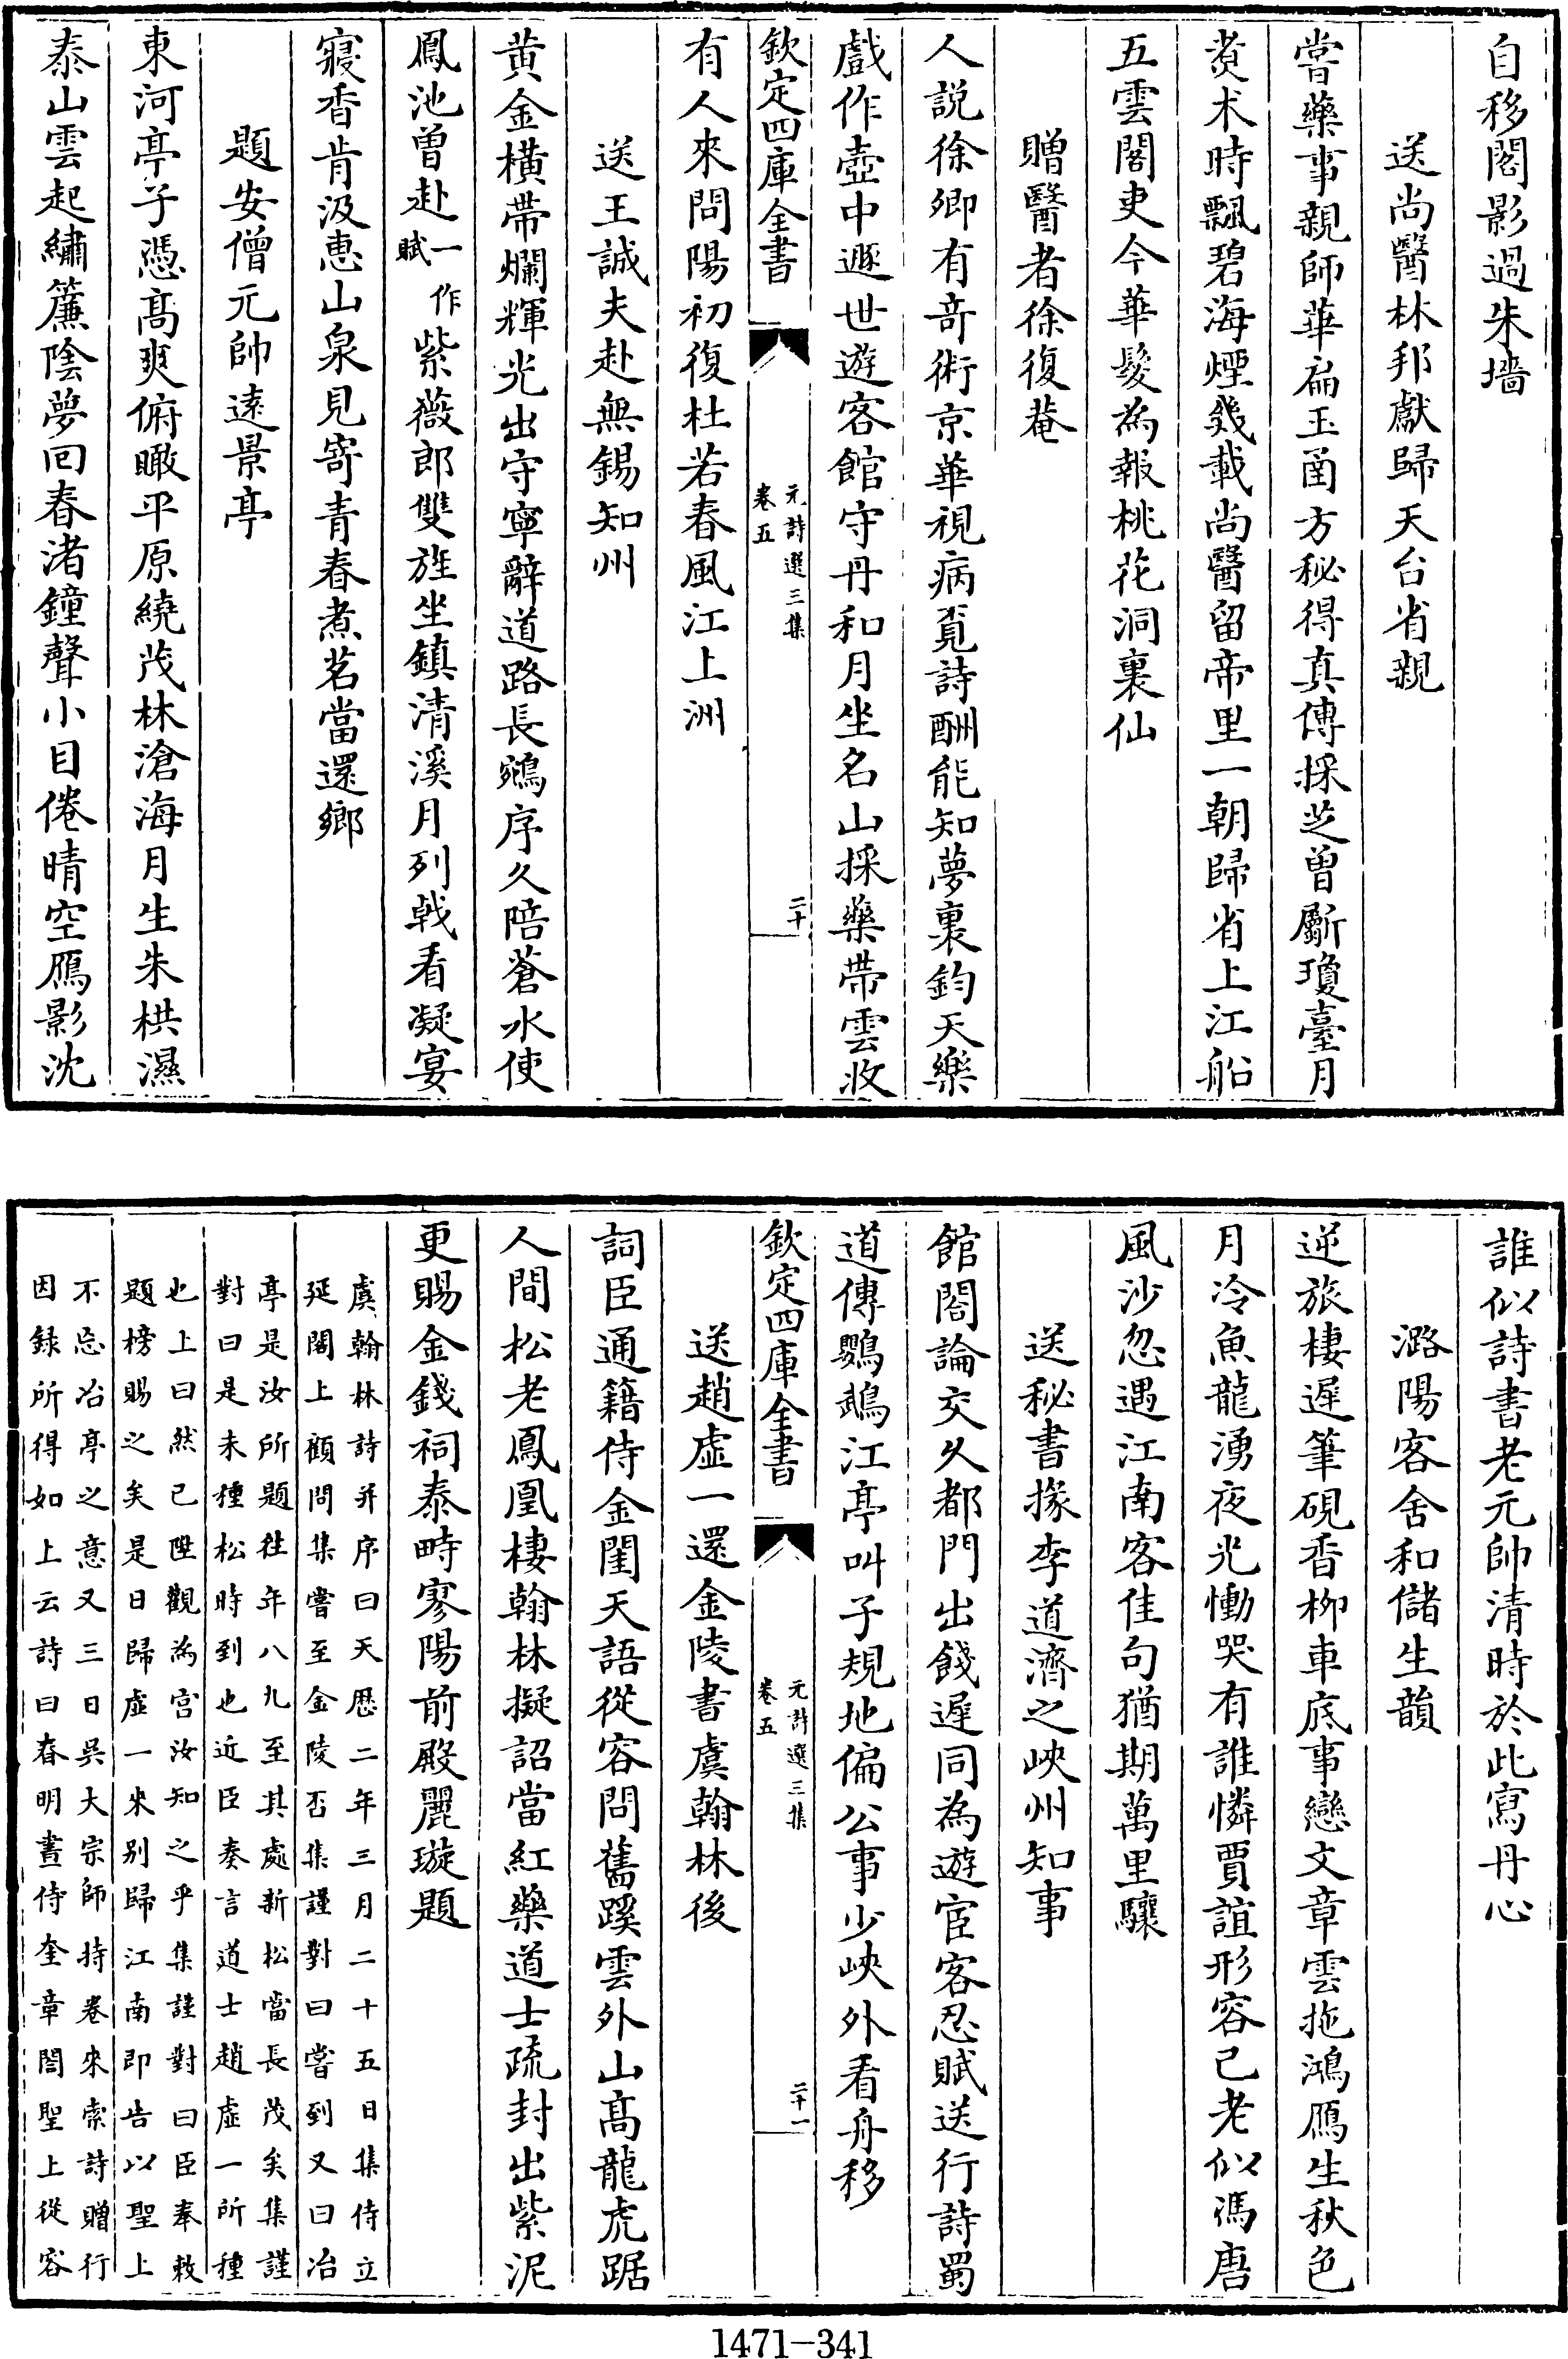 自移閣影過朱墻
送尚醫林邦獻歸天台省親
嘗藥事親師華扁玉函方秘得真傳採芝曾斸瓊臺月
煑术時飄碧海煙幾載尚醫留帝里一朝歸省上江船
五雲閣吏今華髮為報桃花洞裏仙
贈醫者徐復菴
人説徐卿有竒術京華視病覓詩酬能知夢裏鈞天樂
戲作壺中遯世遊客館守丹和月坐名山採藥帶雲收
欽定四庫全書
元詩選三集
卷五
二十
有人來問陽初復杜若春風江上洲
送王誠夫赴無錫知州
黄金橫帶爛輝光出守寧辭道路長鵷序久陪蒼水使
鳳池曽赴一作賦紫薇郎雙旌坐鎮清溪月列戟看凝宴
寢香肯汲惠山泉見寄青春煮茗當還鄉
題安僧元帥遠景亭
東河亭子憑髙爽俯瞰平原繞茂林滄海月生朱栱濕
泰山雲起繡簾陰夢回春渚鐘聲小目倦晴空鴈影沈
誰似詩書老元帥清時於此寫丹心
潞陽客舍和儲生韻
逆旅棲遲筆硯香栁車底事戀文章雲拖鴻鴈生秋色
月冷魚龍湧夜光慟哭有誰憐賈誼形容已老似馮唐
風沙忽遇江南客佳句猶期萬里驤
送秘書掾李道濟之峽州知事
館閣論交久都門出餞遲同為遊宦客忍賦送行詩蜀
道傳鸚鵡江亭叫子規地偏公事少峽外看舟移
欽定四庫全書
元詩選三集
卷五
二十一
送趙虛一還金陵書虞翰林後
詞臣通籍侍金閨天語從容問舊蹊雲外山髙龍虎踞
人間松老鳳凰棲翰林擬詔當紅藥道士疏封出紫泥
更賜金錢祠泰畤寥陽前殿麗璇題
虞翰林詩并序曰天厯二年三月二十五日集侍立
延閣上顧問集嘗至金陵否集謹對曰嘗到又曰冶
亭是汝所題往年八九至其處新松當長茂矣集謹
對曰是未種松時到也近臣奏言道士趙虛一所種
也上曰然已陞觀為宫汝知之乎集謹對曰臣奉敕
題榜賜之矣是日歸虛一來别歸江南即告以聖上
不忘冶亭之意又三日吳大宗師持卷來索詩贈行
因録所得如上云詩曰春明晝侍奎章閣聖上從容
1471-341